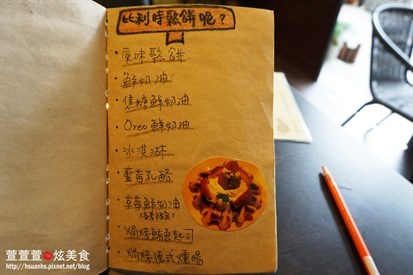 比利時鬆餅呢？
・原味鬆餅
・鮮奶油
・焦糖鮮奶油
・Oreo 鮮奶油
・冰淇淋
・藍莓乳酪
・草莓鮮奶油
・燻燒鮪魚起司
・燻燒德式燻腸
萱萱萱 炫美食
http://hsuanhs.pixnet.net/blog